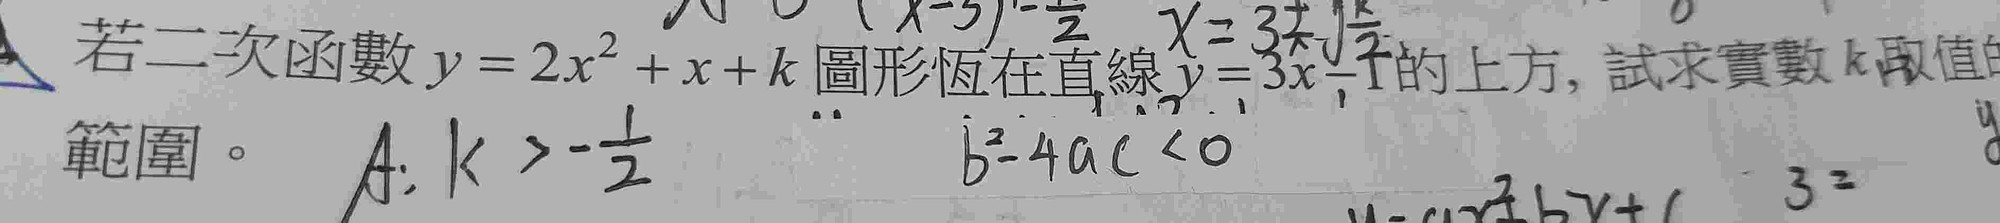 (x-3)²=k/2 x=3±√k/2
若二次函數 y = 2x² + x + k 圖形恆在直線 y = 3x − 1 的上方, 試求實數 k 取值的
範圍。 A: k > -1/2 b²-4ac<0
y=ax²+bx+c 3=
y